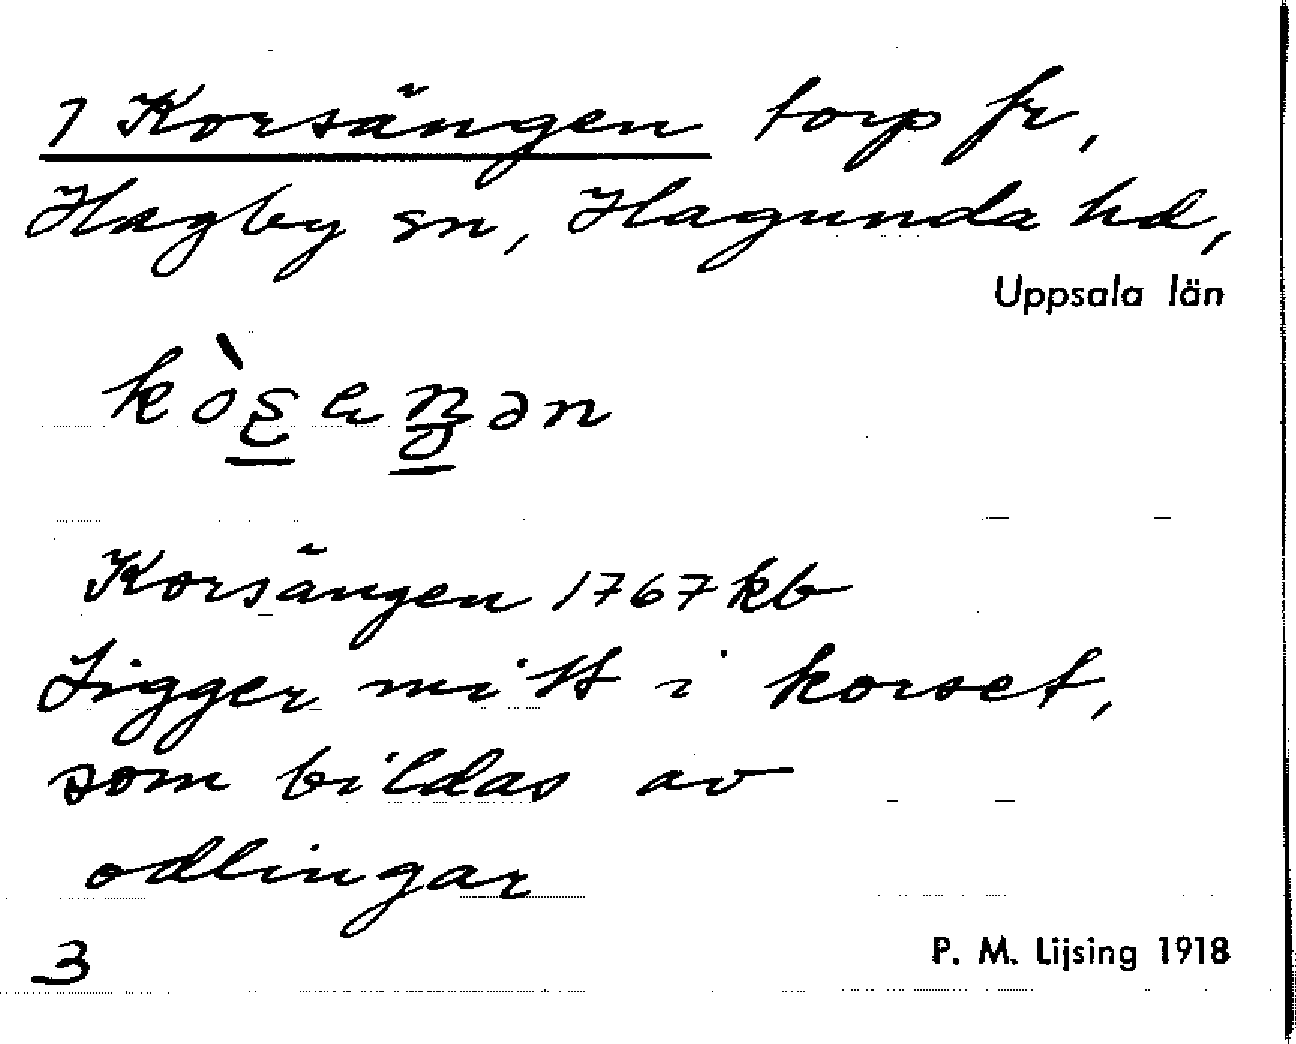 1 Korsängen torp fr,
Hagby sn, Hagunda hd,
Uppsala län
Korsängen 1767 kb
Ligger mitt i korset,
som bildas av
odlingar
3
P. M. Lijsing 1918